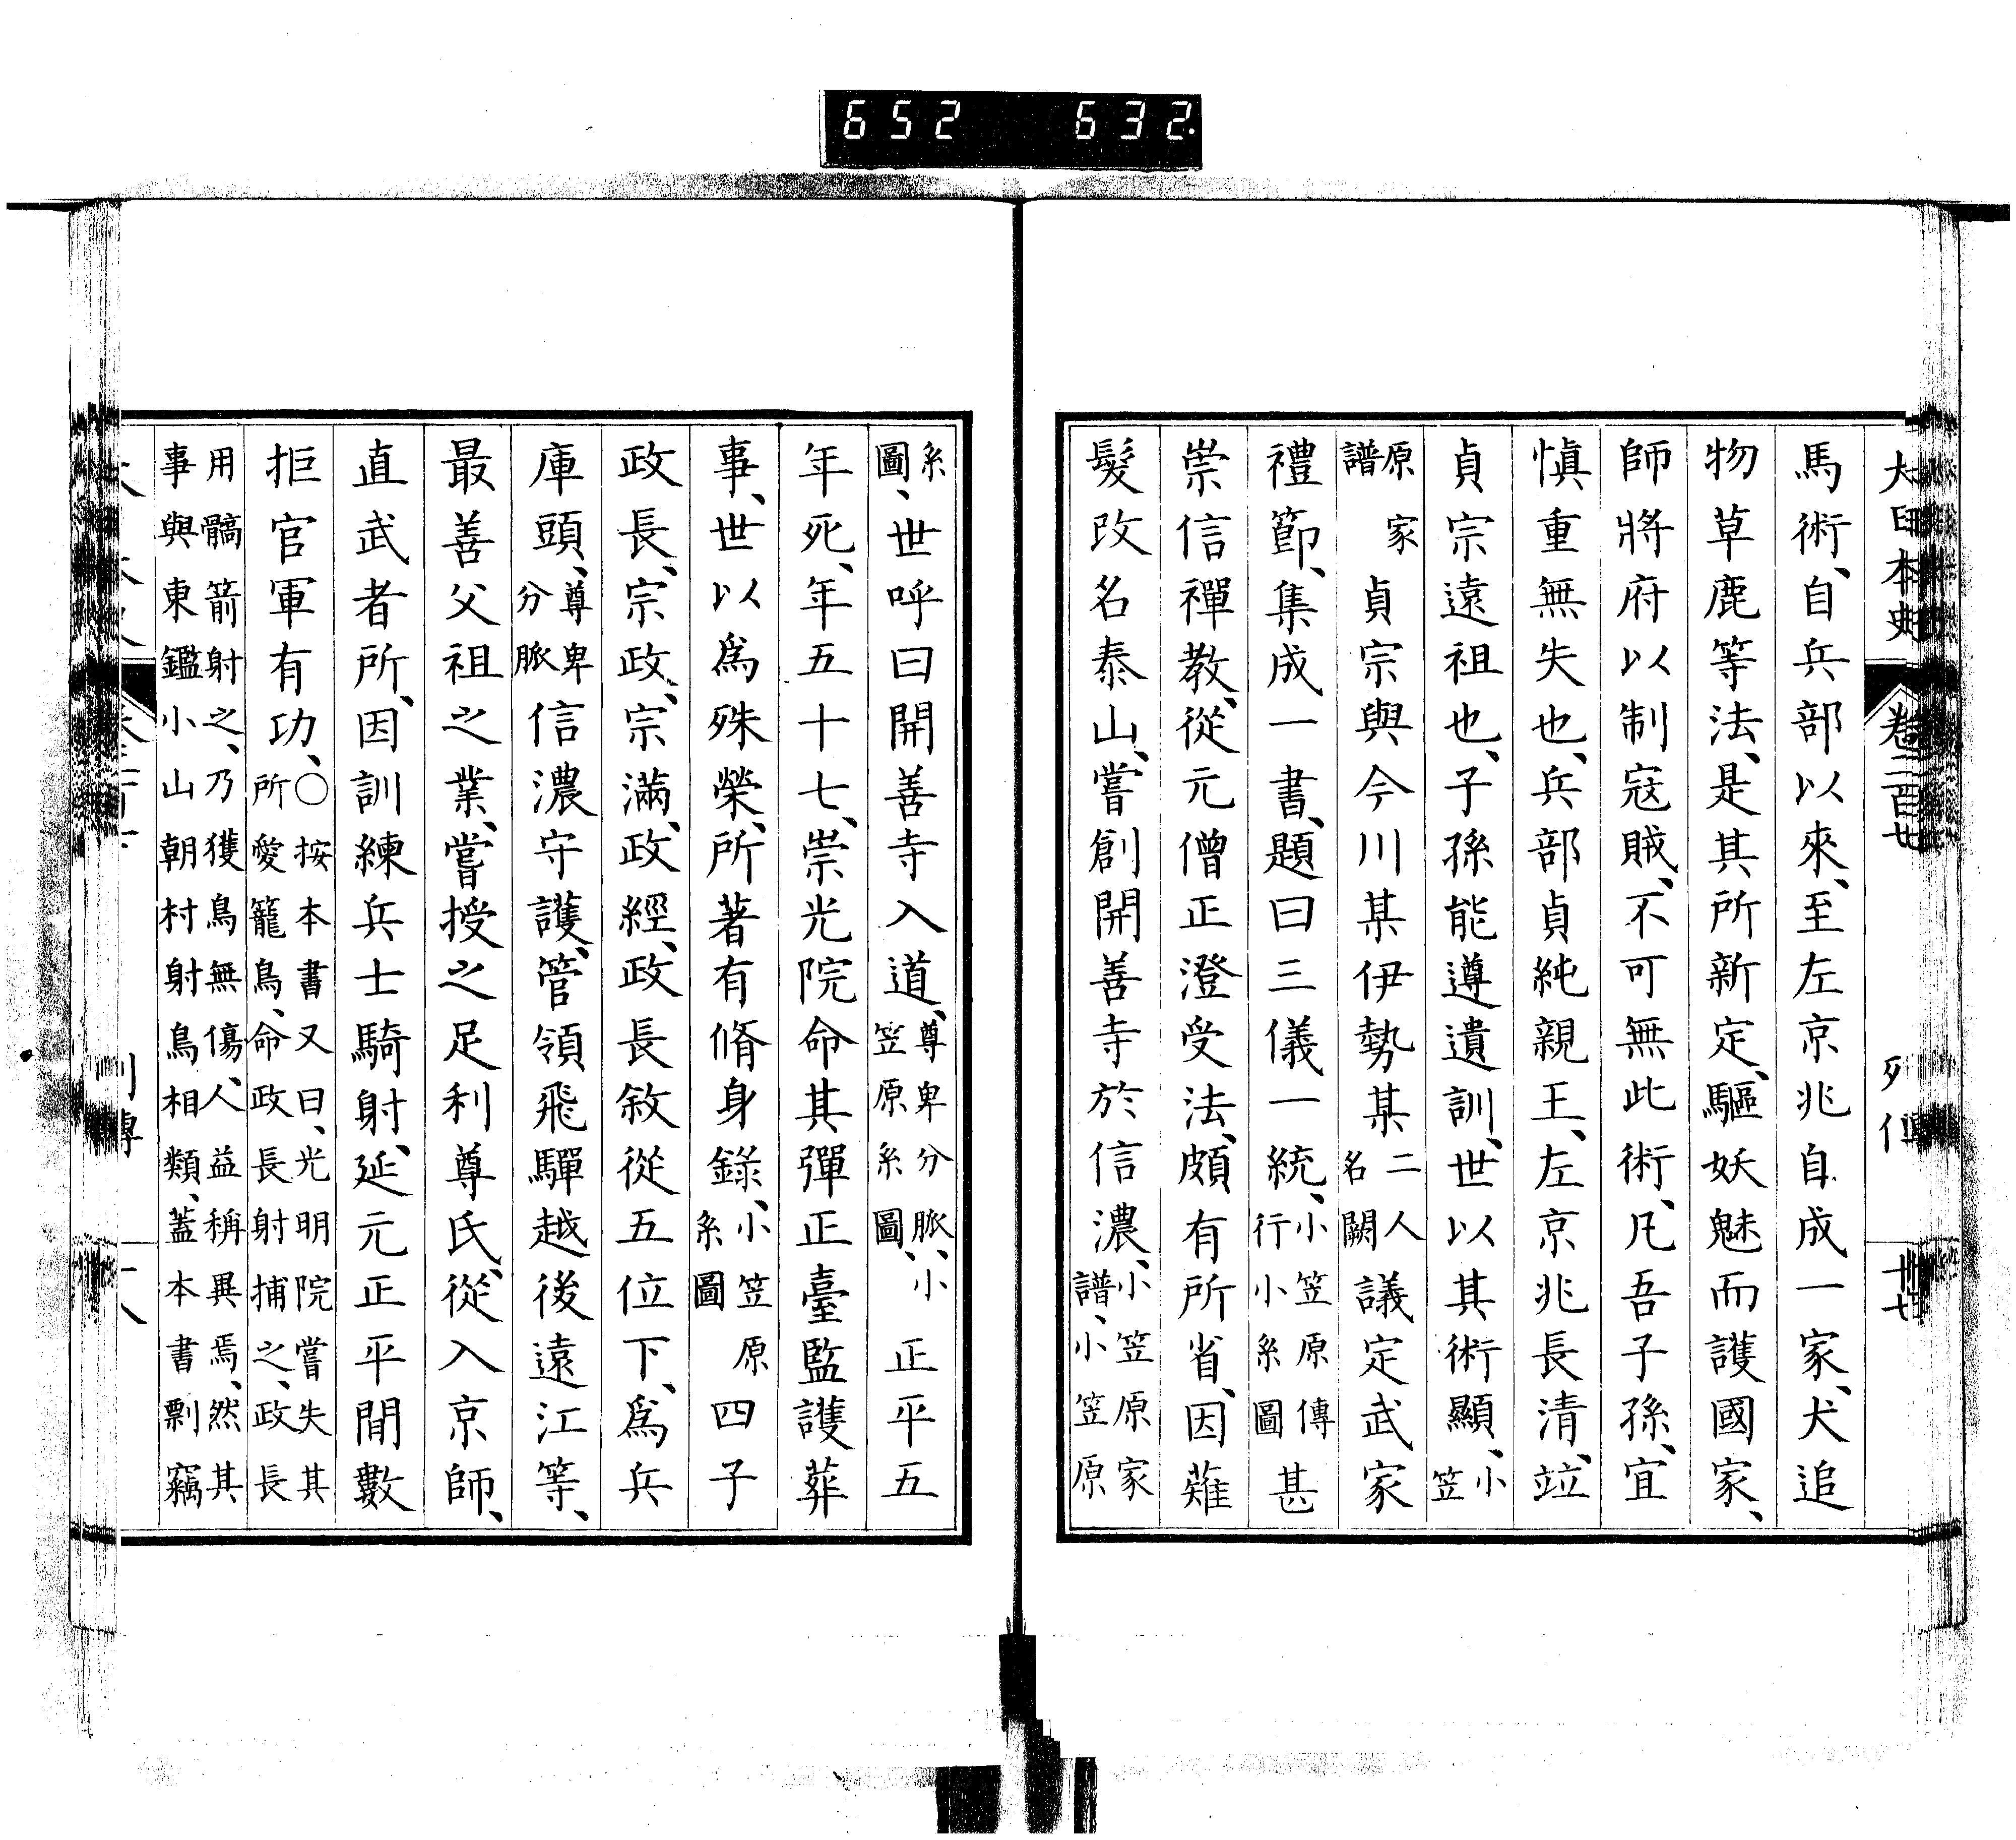 652 632.
大日本史 卷二百廿 列傳
馬術、自兵部以來、至左京兆自成一家、犬追
物草鹿等法、是其所新定、驅妖魅而護國家、
師將府以制寇賊、不可無此術、凡吾子孫、宜
慎重無失也、兵部貞純親王、左京兆長清、竝
貞宗遠祖也、子孫能遵遺訓、世以其術顯、小笠
原家譜貞宗與今川某伊勢某二人名闕議定武家
禮節、集成一書、題曰三儀一統、小笠原傳行小系圖甚
崇信禪教、從元僧正澄受法、頗有所省、因薙
髮改名泰山、嘗創開善寺於信濃、小笠原家譜、小笠原
系圖、世呼曰開善寺入道、尊卑分脈、小笠原系圖、正平五
年死、年五十七、崇光院命其彈正臺監護葬
事、世以爲殊榮、所著有脩身錄、小笠原系圖四子
政長、宗政、宗滿、政經、政長敘從五位下、爲兵
庫頭、尊卑分脈信濃守護、管領飛驒越後遠江等、
最善父祖之業、嘗授之足利尊氏、從入京師、
直武者所、因訓練兵士騎射、延元正平間數
拒官軍有功、○按本書又曰、光明院嘗失其所愛籠鳥、命政長射捕之、政長
用髇箭射之、乃獲鳥無傷、人益稱異焉、然其事與東鑑小山朝村射鳥相類、蓋本書剽竊